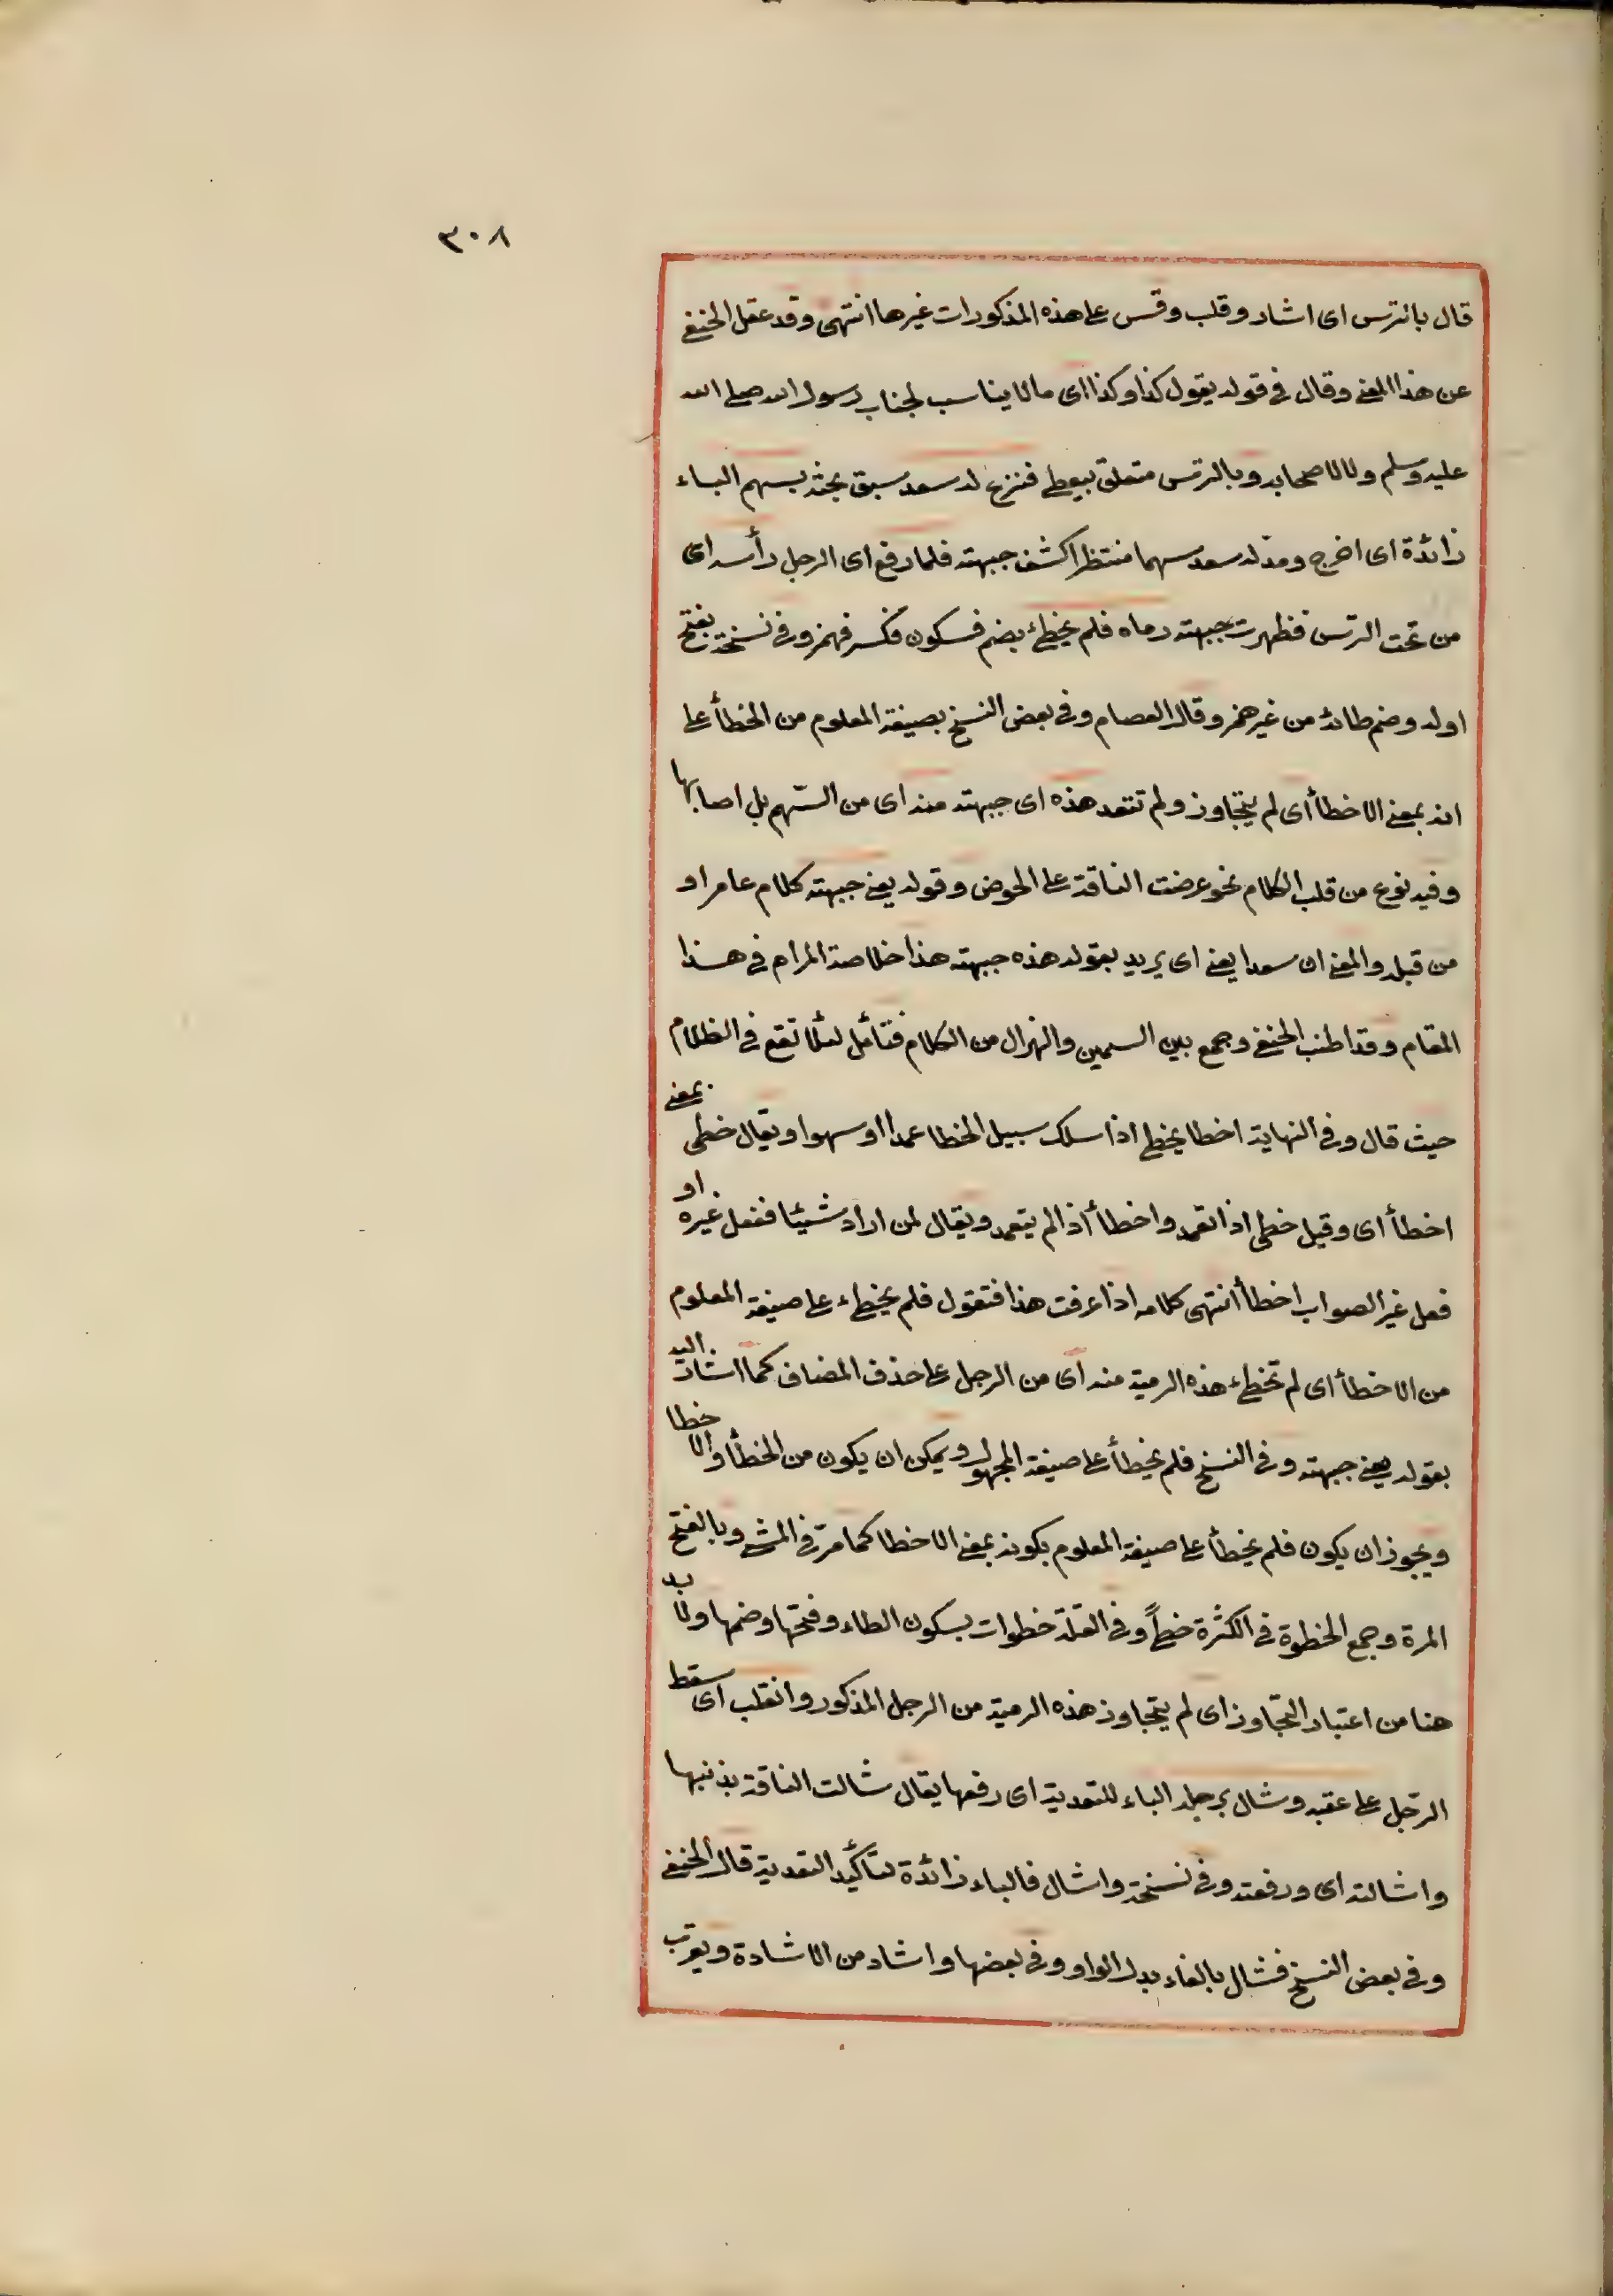 ٣٠٨
قال بالترس اى اشار وقلب وقس على هذه المذكورات غيرها انتهى وقد غفل الحنفى
عن هذا المعنى وقال فى قوله يقول كذا وكذا اى مالا يناسب لجناب رسول الله صلى الله
عليه وسلم ولا لاصحابه وبالترس متعلق بيغطى فنزع له سعد سبق بحثه بسهم الباء
زائدة اى اخرج ومد له سعد سهما منتظرا كشف جبهته فلما رفع اى الرجل رأسه اى
من تحت الترس فظهرت جبهته رماه فلم يخطء بضم فسكون فكسر فهمز وفى نسخة بفتح
اوله وضم طائه من غير همز وقال العصام وفى بعض النسخ بصيغة المعلوم من الخطأ على
انه بمعنى الاخطأ اى لم يتجاوز ولم تتعد هذه اى جبهته منه اى من السّهم بل اصابها
وفيه نوع من قلب الكلام نحو عرضت الناقة على الحوض وقوله يعنى جبهته كلام عامر او
من قبله والمعنى ان سعدا يعنى اى يريد بقوله هذه جبهته هذا خلاصة المرام فى هذا
المقام وقد اطنب الحنفى وجمع بين السمين والهزال من الكلام فتأمل لئلا تقع فى الظلام
حيث قال وفى النهاية اخطا يخطى اذا سلك سبيل الخطا عمدا او سهوا ويقال خطى بمعنى
اخطأ اى وقيل خطى اذا تعمد واخطأ اذا لم يتعمد ويقال لمن اراد شيئا ففعل غيره او
فعل غير الصواب اخطأ انتهى كلامه اذا عرفت هذا فتقول فلم يخطء على صيغة المعلوم
من الاخطأ اى لم تخطء هذه الرمية منه اى من الرجل على حذف المضاف كما اشار اليه
بقوله يعنى جبهته وفى النسخ فلم يخطأ على صيغة المجهول ويمكن ان يكون من الخطأ والاخطا
ويجوز ان يكون فلم يخطأ على صيغة المعلوم بكونه بمعنى الاخطا كما مرّ فى المشى وبالفتح
المرة وجمع الخطوة فى الكثرة خطاً وفى القلة خطوات بسكون الطاء وفتحها وضمها ولا بد
هنا من اعتبار التجّاوز اى لم يتجاوز هذه الرمية من الرجل المذكور وانقلب اى سقط
الرّجل على عقبه وشال برجله الباء للتعدية اى رفعها يقال شالت الناقة بذنبها
واشالته اى ورفعته وفى نسخة واشال فالباء زائدة لتأكيد التعدية قال الحنفى
وفى بعض النسخ فشال بالفاء بدل الواو وفى بعضها واشاد من الاشادة ويقرب